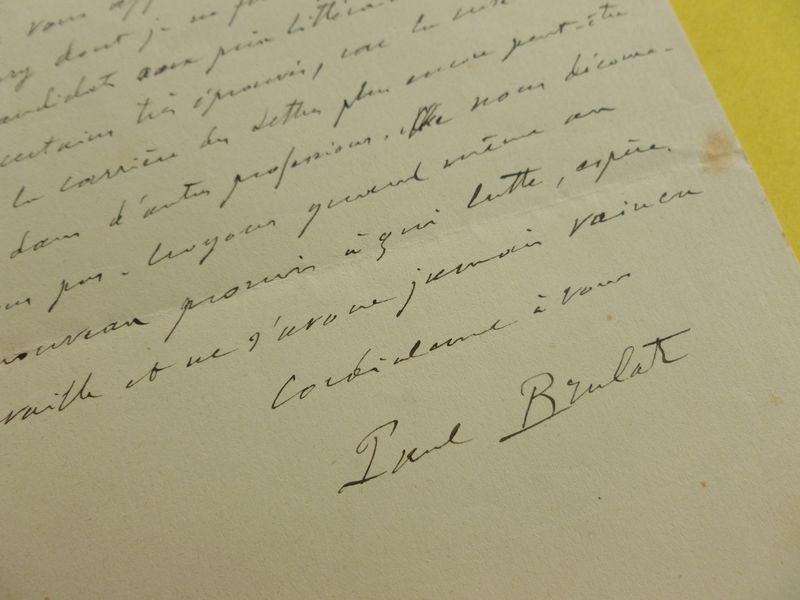 vous
dont je ne
candidats aux prix littérai
certains très éprouvés, car la crise
la carrière des Lettres plus encore peut-être
dans d'autres professions. Ne nous découra-
pas. Croyons quand même au
nouveau promis à qui lutte, espère,
vaille et ne s'avoue jamais vaincu
Cordialement à vous
Paul Brulat